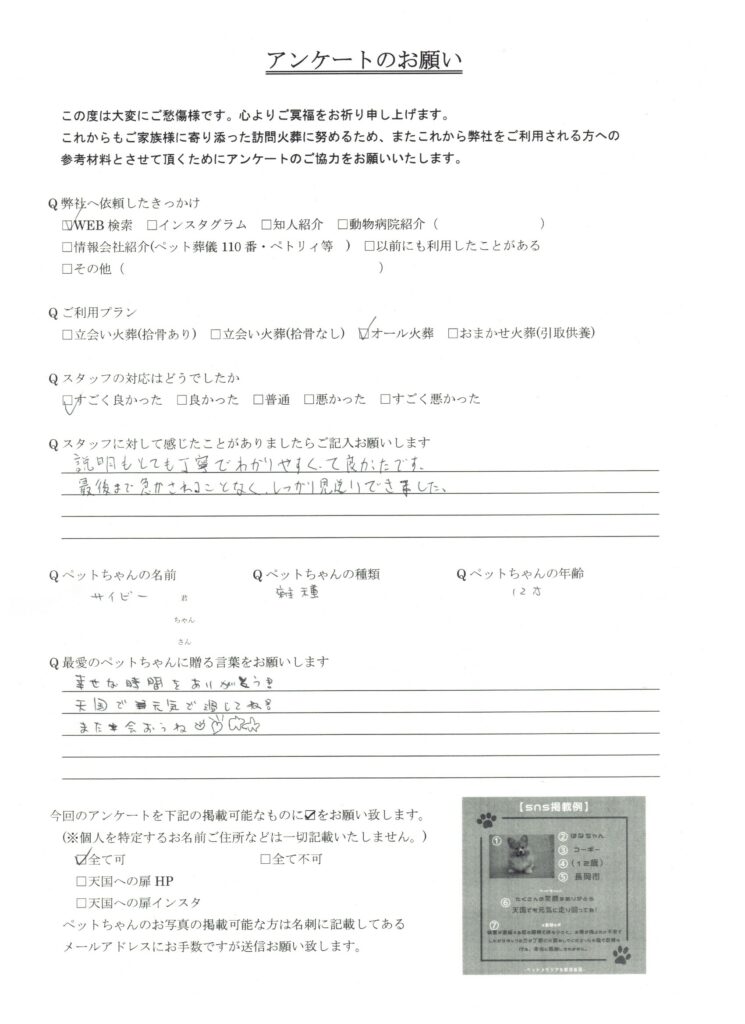 アンケートのお願い
この度は大変にご愁傷様です。心よりご冥福をお祈り申し上げます。
これからもご家族様に寄り添った訪問火葬に努めるため、またこれから弊社をご利用される方への
参考材料とさせて頂くためにアンケートのご協力をお願いいたします。
Q 弊社へ依頼したきっかけ
☑WEB 検索 □インスタグラム □知人紹介 □動物病院紹介（ ）
□情報会社紹介(ペット葬儀 110 番・ペトリィ等 ) □以前にも利用したことがある
□その他（ ）
Q ご利用プラン
□立会い火葬(拾骨あり) □立会い火葬(拾骨なし) ☑オール火葬 □おまかせ火葬(引取供養)
Q スタッフの対応はどうでしたか
☑すごく良かった □良かった □普通 □悪かった □すごく悪かった
Q スタッフに対して感じたことがありましたらご記入お願いします
説明もとても丁寧でわかりやすくて良かったです。
最後まで急かされることなく、しっかり見送りできました。
Q ペットちゃんの名前 Q ペットちゃんの種類 Q ペットちゃんの年齢
サイビー 君 雑種 12才
ちゃん
さん
Q 最愛のペットちゃんに贈る言葉をお願いします
幸せな時間をありがとう!!
天国で元気で過してね!!
また会おうね
今回のアンケートを下記の掲載可能なものに☑をお願い致します。
(※個人を特定するお名前ご住所などは一切記載いたしません。)
☑全て可 □全て不可
□天国への扉 HP
□天国への扉インスタ
ペットちゃんのお写真の掲載可能な方は名刺に記載してある
メールアドレスにお手数ですが送信お願い致します。
【sns掲載例】
① ② はなちゃん
③ コーギー
④ （12歳）
⑤ 長岡市
⑥ たくさんの笑顔をありがとう
天国でも元気に走り回ってね!
⑦